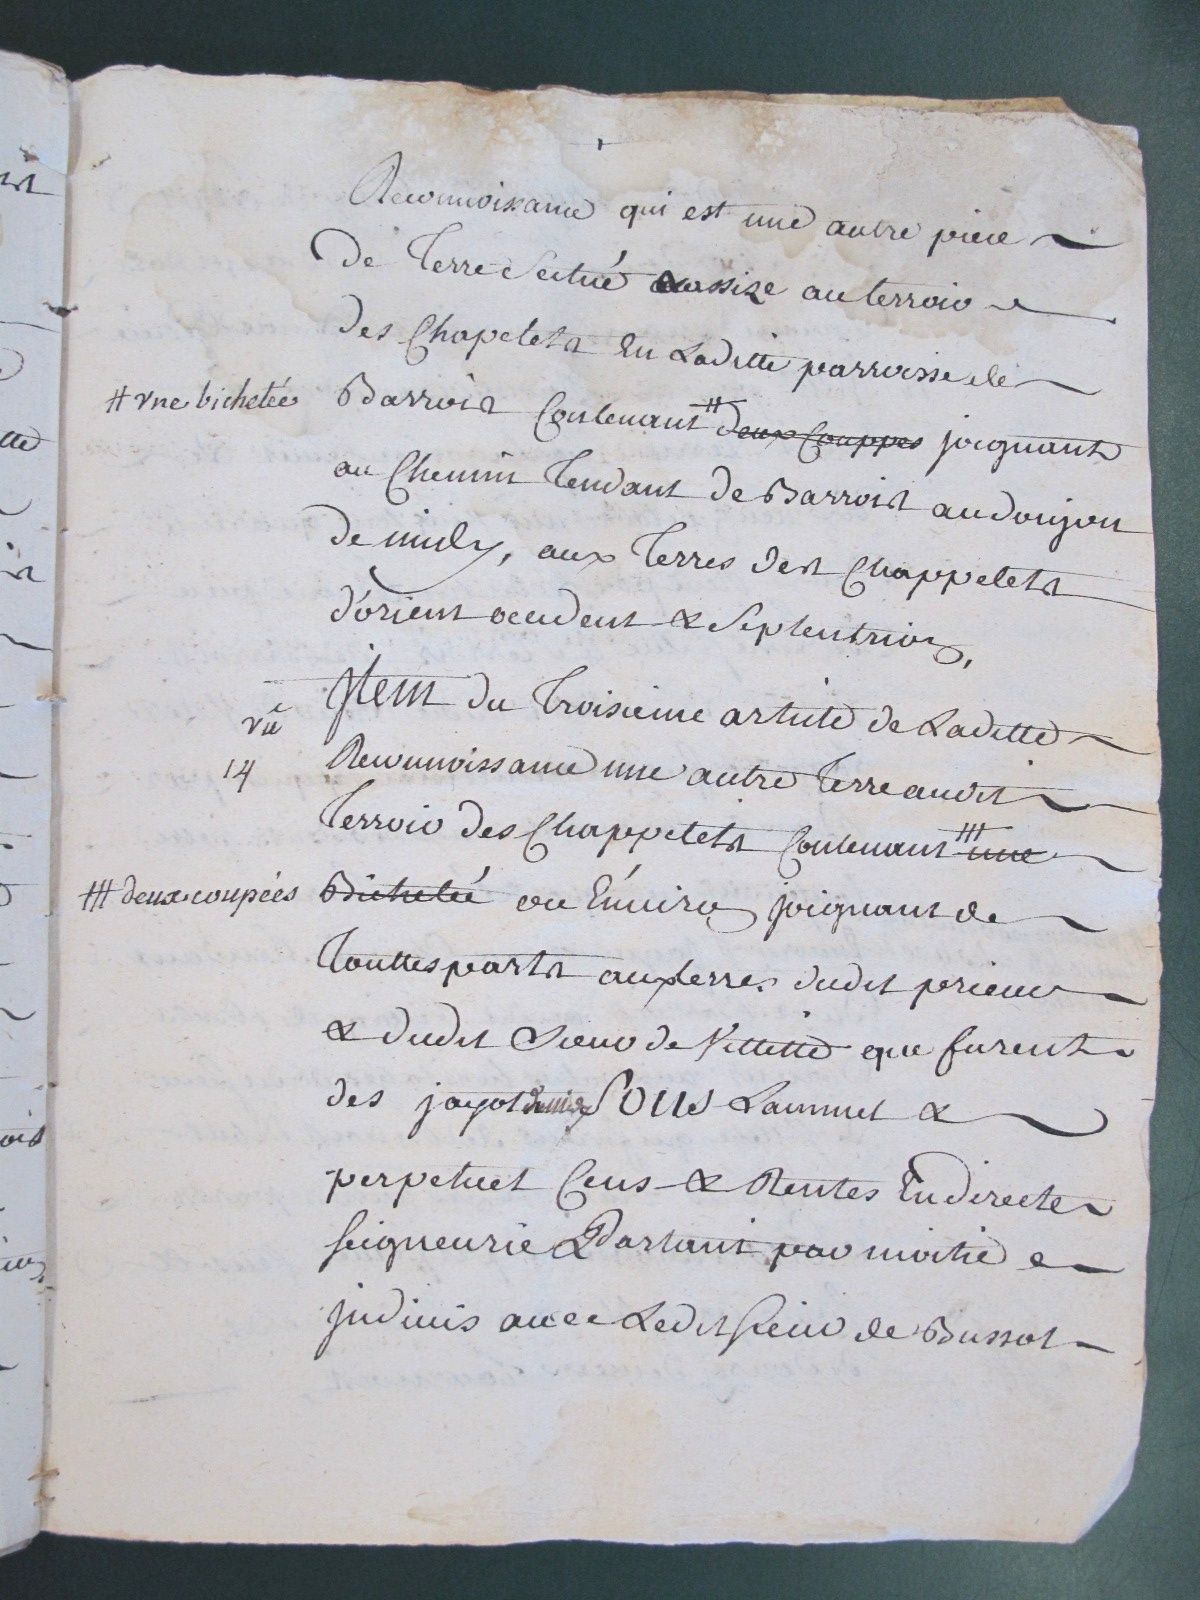 Reconnoissance qui est une autre piece
de Terre Scituè & assize au terroir
des Chapelets En Laditte parroisse de
# vne bichetée
Barrois Contenant # deux Couppes joignant
au Chemin Tendant de Barrois au donjon
de mily, aux Terres des Chappelets
d'orient occident & Septentrion,
Jtem du Troisieme article de Laditte
vû
14
Reconnoissance une autre Terre audit
Terroir des Chappelets Contenant ⧻ une
⧻ deux coupées
Bicheteé ou Environ joignant de
Touttes parts aux terres dudit prieur
& dudit Sieur de Villette que furent
des jayot Sous Lannuel &
perpetuel Cens & Rentes En directe
Seigneurie Partant par moitié e
jndivis avec Ledit Sieur de Bussot